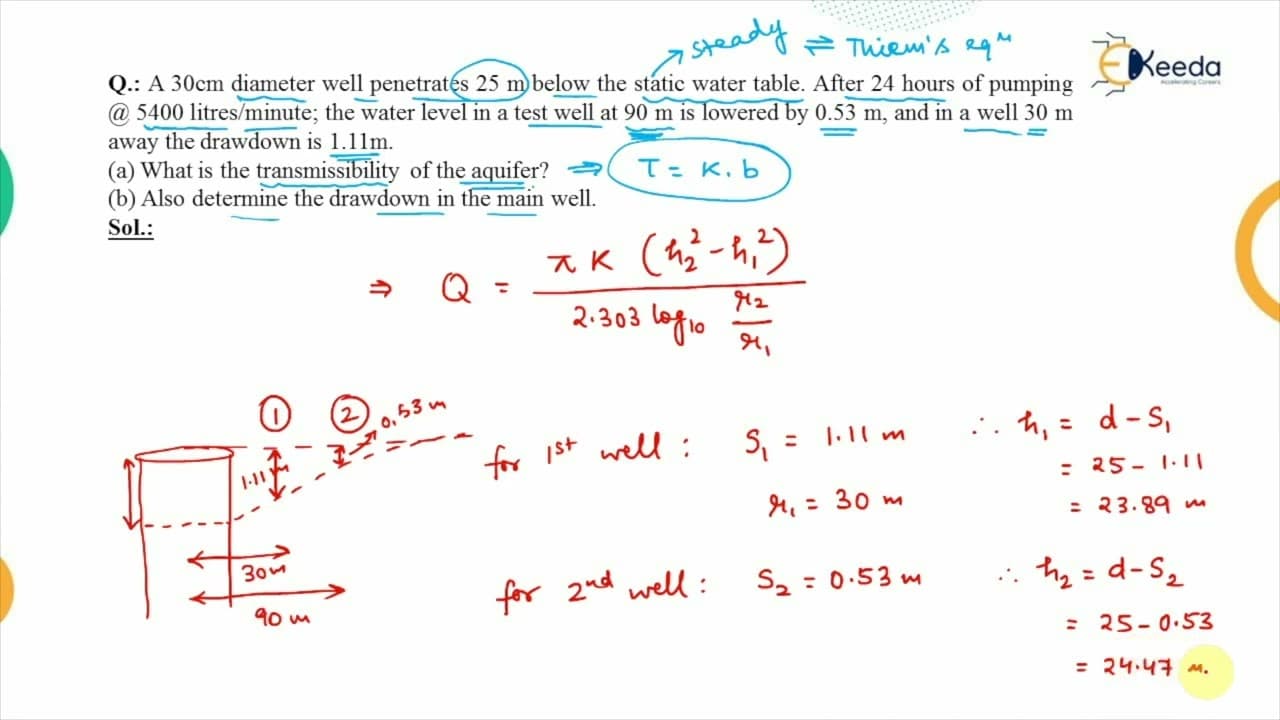 steady ⇌ Thiem's eqⁿ
EKeeda
Accelerating Careers
Q.: A 30cm diameter well penetrates 25 m below the static water table. After 24 hours of pumping
@ 5400 litres/minute; the water level in a test well at 90 m is lowered by 0.53 m, and in a well 30 m
away the drawdown is 1.11m.
(a) What is the transmissibility of the aquifer? ⇒ T = K.b
(b) Also determine the drawdown in the main well.
Sol.:
⇒ Q = π K (h₂² - h₁²)
2.303 log₁₀ r₂
r₁
1 2 0.53 m
1.11 m
30m
90 m
for 1st well : S₁ = 1.11 m ∴ h₁ = d - S₁
= 25 - 1.11
r₁ = 30 m = 23.89 m
for 2nd well : S₂ = 0.53 m ∴ h₂ = d - S₂
= 25 - 0.53
= 24.47 m.